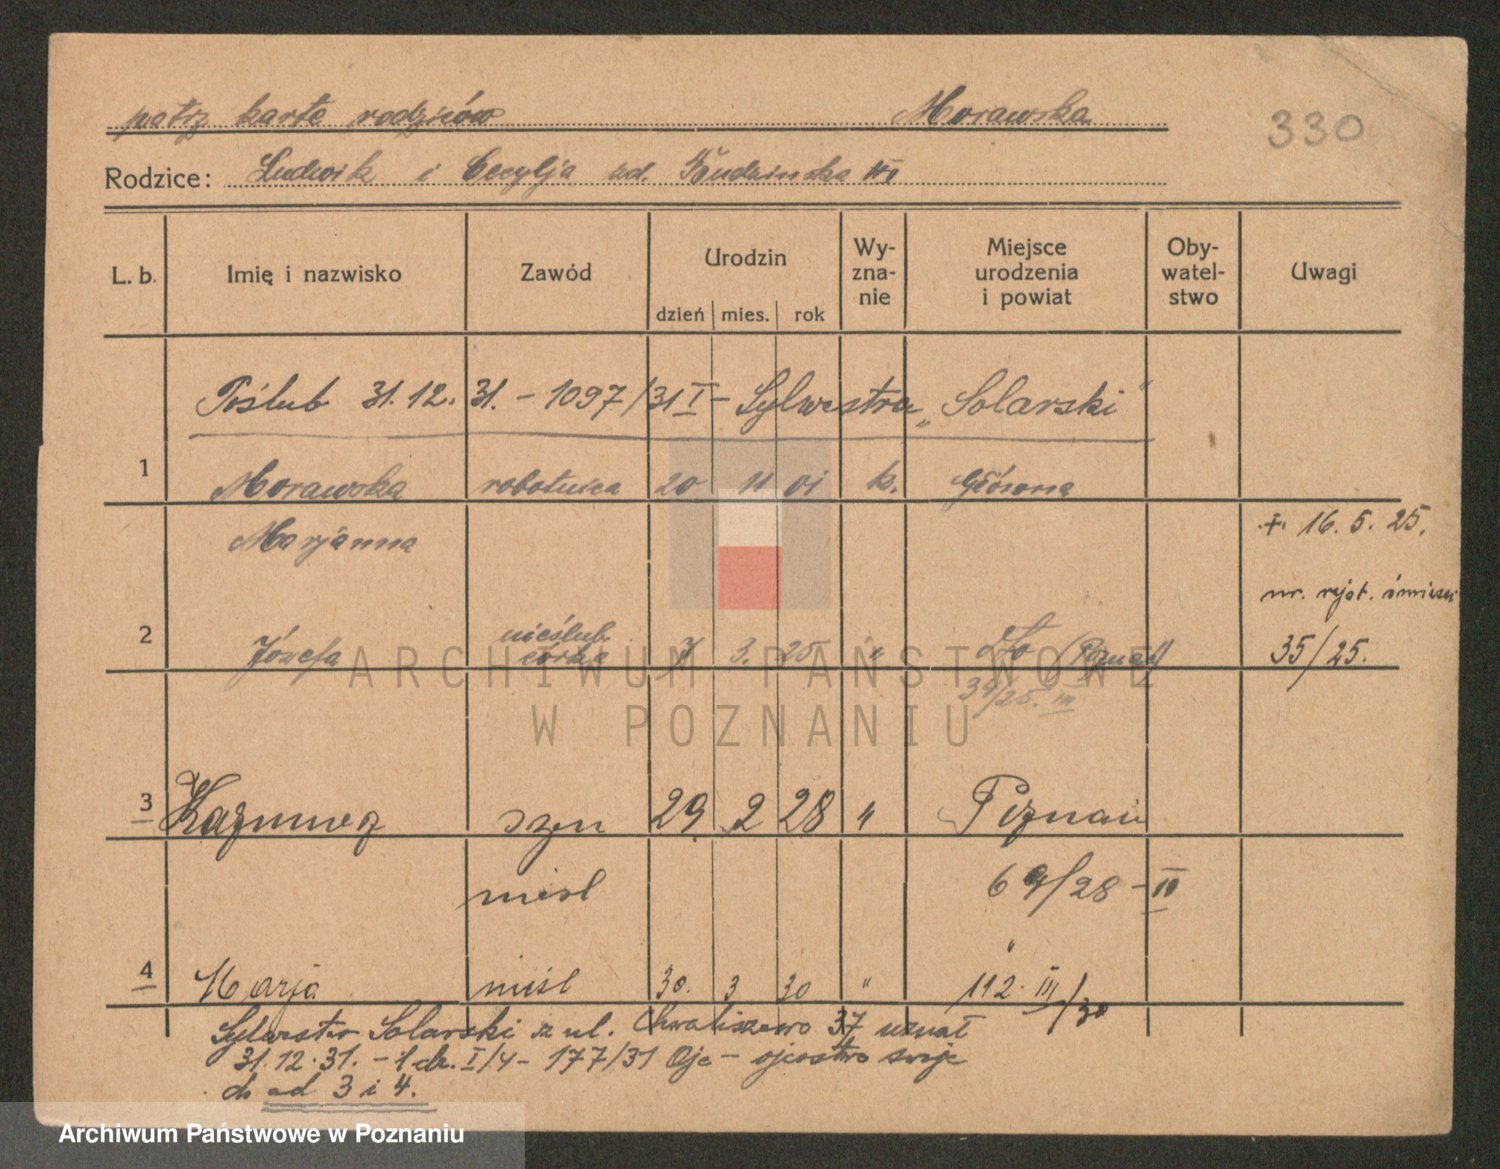 patrz karte rodziców Morawska
330
Rodzice: Ludwik i Cecylja zd. Budzinska
L. b. Imię i nazwisko Zawód Urodzin dzień mies. rok Wy-zna-nie Miejsce urodzenia i powiat Oby-watel-stwo Uwagi
Poślub 31.12.31. - 1097/31 I - Sylwestra „Solarski"
1 Morawska robotnica 20 11 01 k. Główna
Marjanna
+ 16. 5. 25.
nr. rejet.
nieślub.
2 Józefa córka 7 3. 25 " dto (Poznań) 35/25.
39/25. III
ARCHIWUM PAŃSTWOWE
W POZNANIU
3 Kazimierz syn 29 2 28 " Poznań
nieśl 69/28 - III
"
4 Marja nieśl 30. 3 30 " 112. III/30
Sylwester Solarski z ul. Chwaliszewo 37 uznał
31.12.31. - I/4 - 177/31 ojcostwo swoje
do ad 3 i 4.
Archiwum Państwowe w Poznaniu